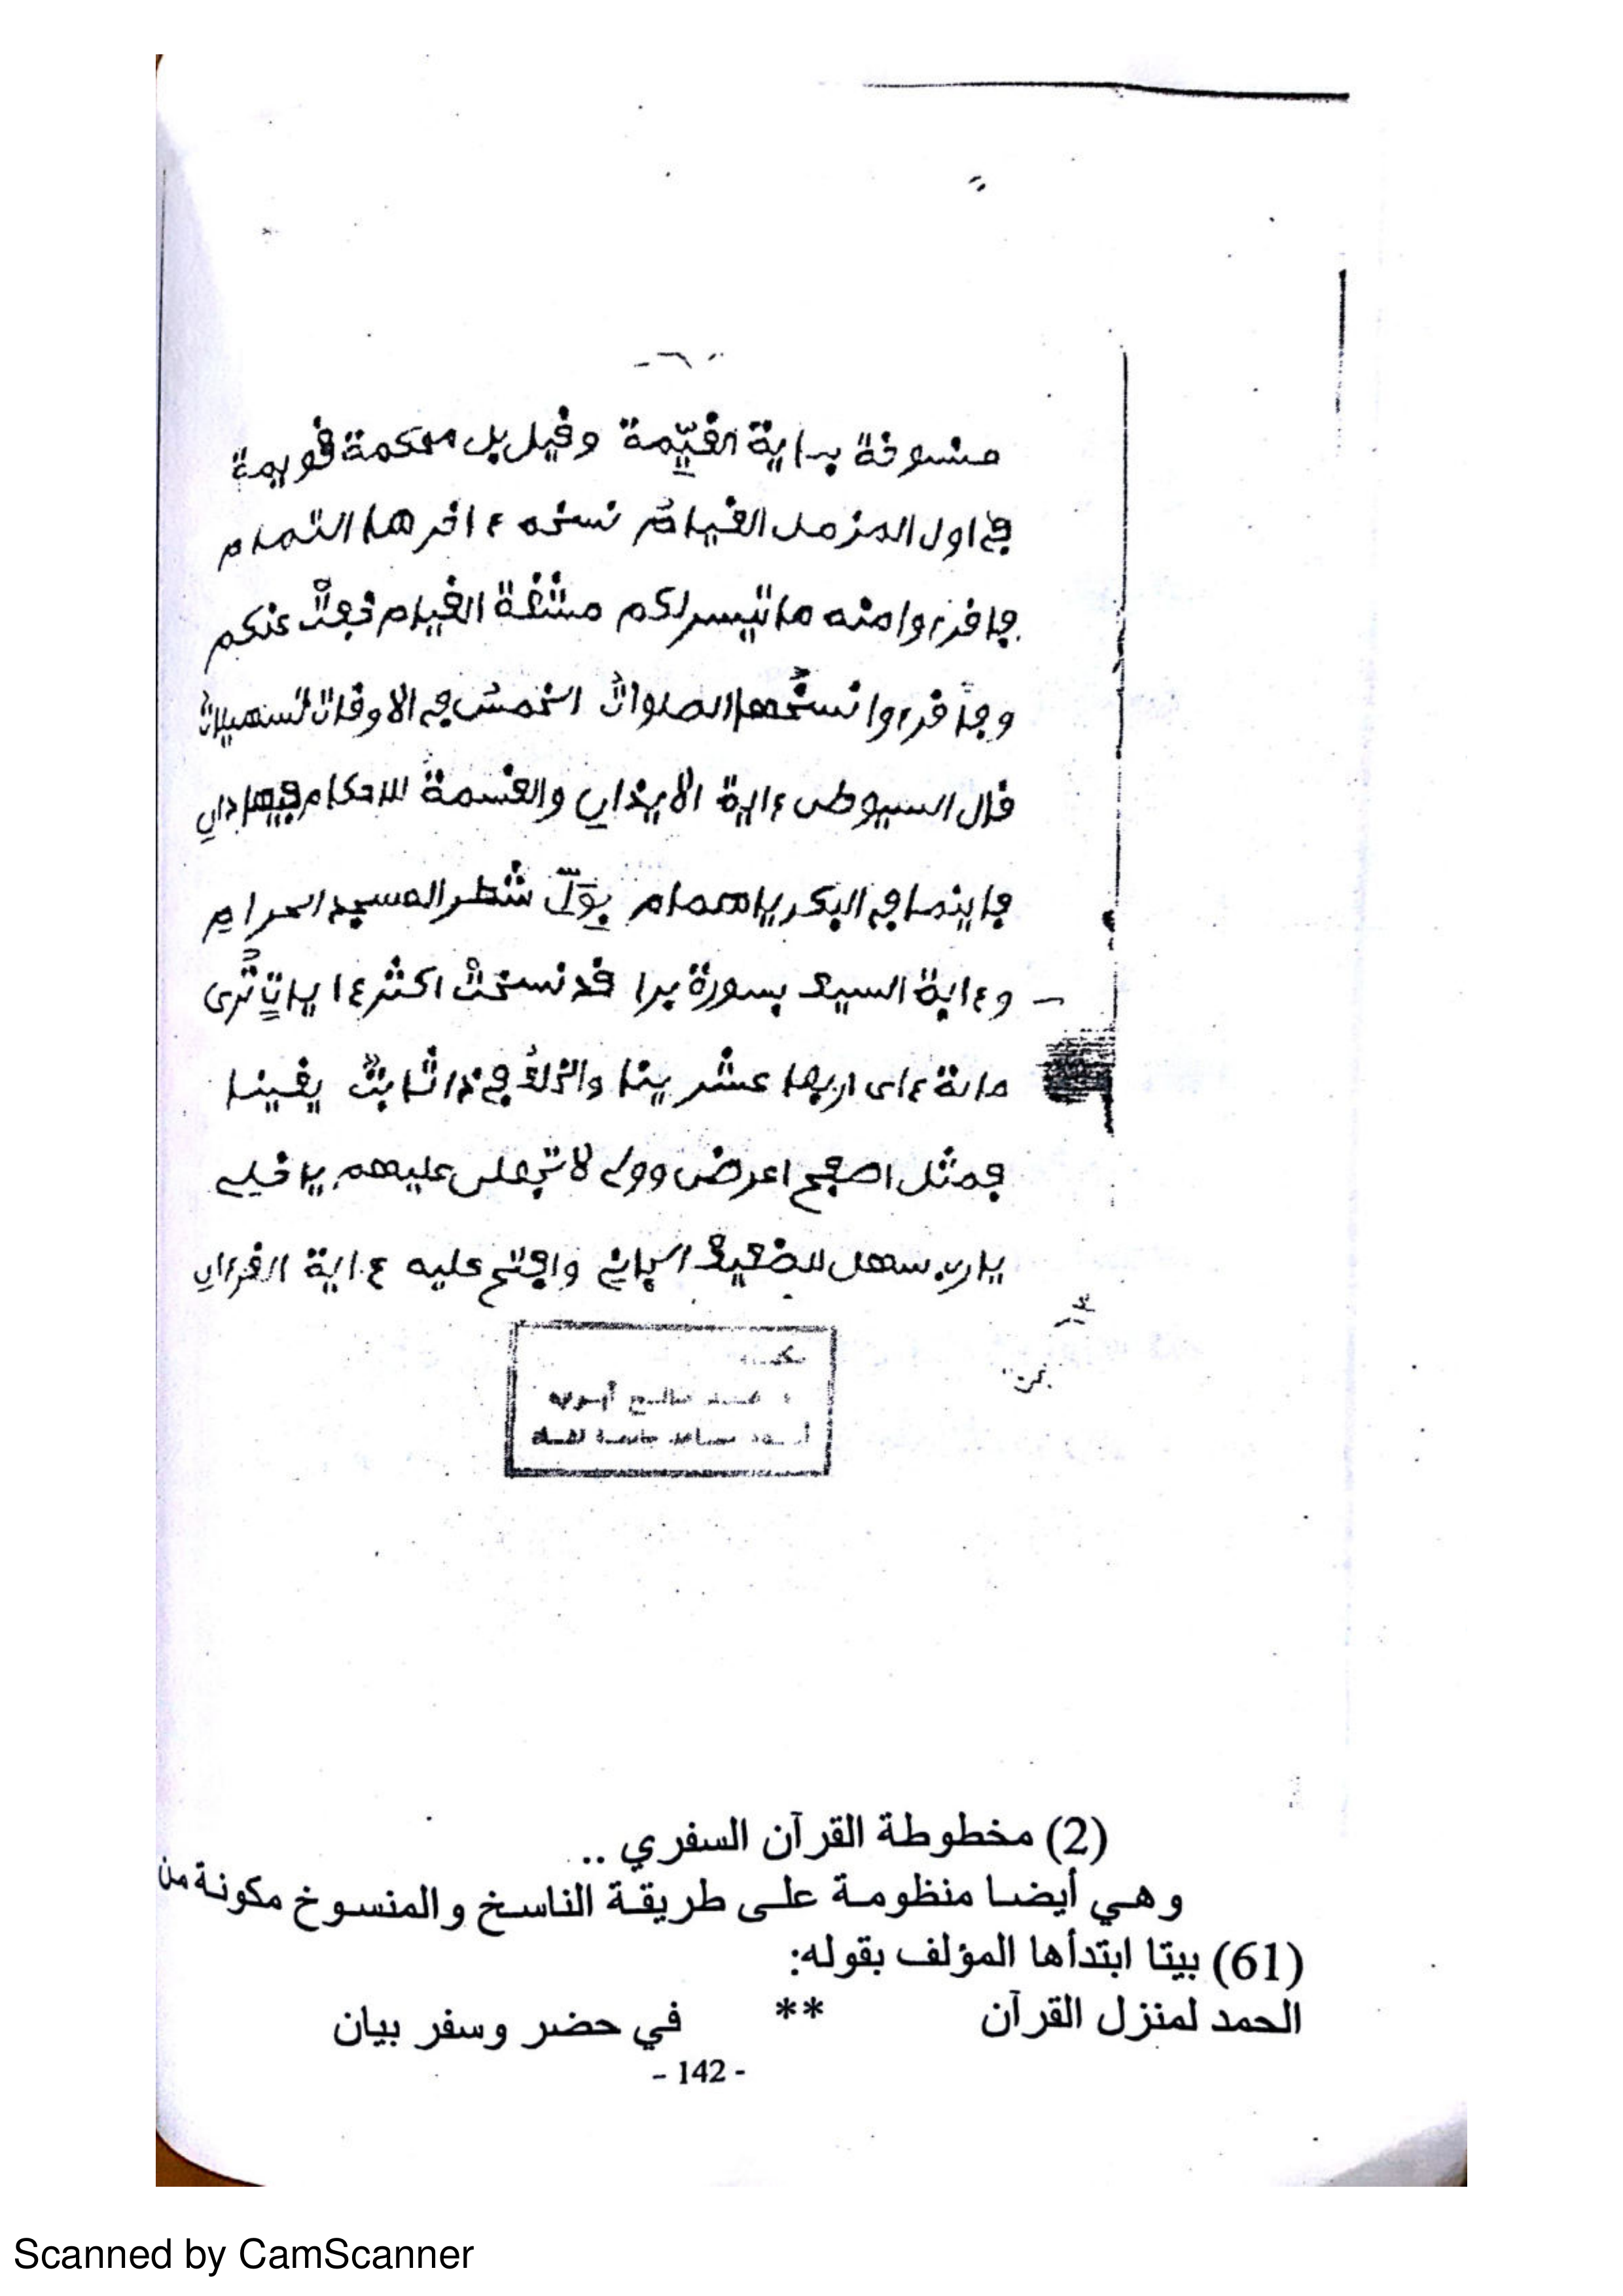 منسوخة بـاية القيّمة وقيل بل محكمة قويمة
في اول المزمل القيام نسخه ءاخرها التمام
فاقرءوا منه ما تيسر لكم مشقة القيام خفت عنكم
وفاقرءوا نسخها الصلوات الخمس في الاوقات تسهيلات
قال السيوطى ءاية الايذان والقسمة للاحكام فيها دان
فاينما في البكر يا همام بول شطر المسجد الحرام
وءاية السيف بسورة برا قد نسخت اكثر ءايات ترى
مائة ءاى اربها عشرينا في ذا ثابت يقينا
فمثل اصفح اعرض وولى لا تجعلى عليهم يا خليل
يا رب سهل للضعيف الجانى وافتح عليه ءاية القرءان
(2) مخطوطة القرآن السفري ..
وهي أيضا منظومة على طريقة الناسخ والمنسوخ مكونة من
(61) بيتا ابتدأها المؤلف بقوله:
الحمد لمنزل القرآن ** في حضر وسفر بيان
- 142 -
Scanned by CamScanner